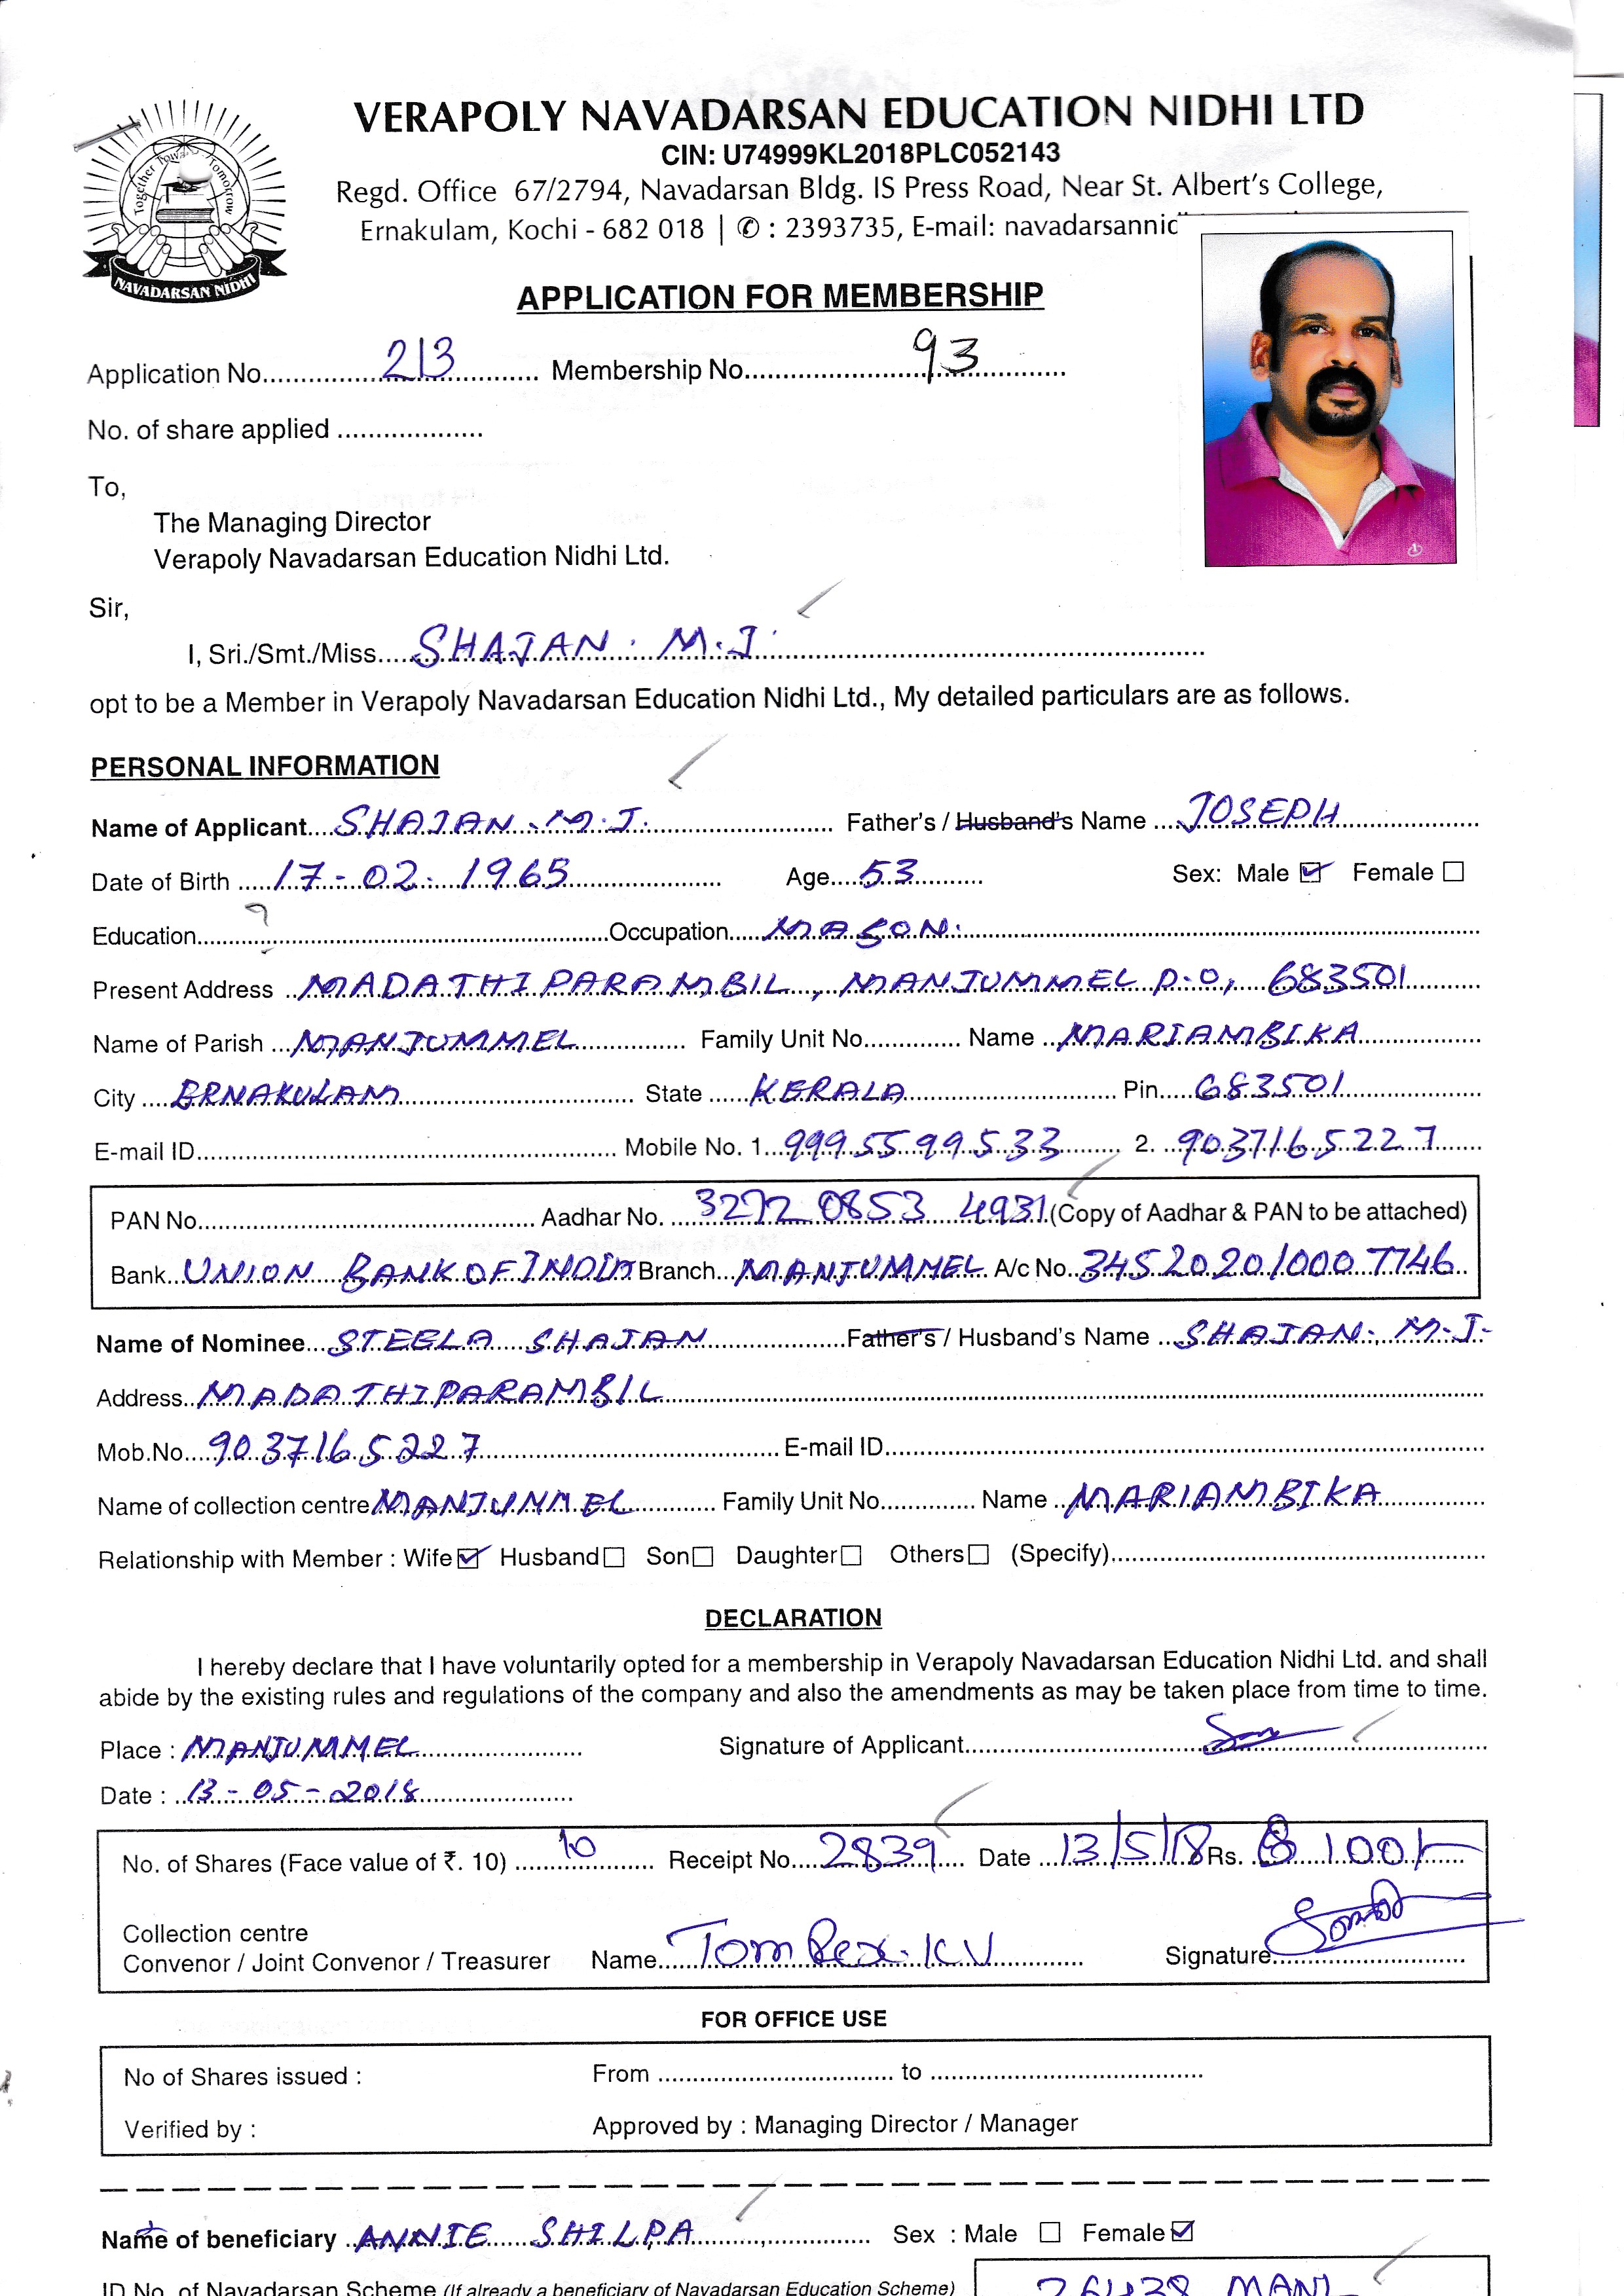 VERAPOLY NAVADARSAN EDUCATION NIDHI LTD
CIN: U74999KL2018PLC052143
Regd. Office 67/2794, Navadarsan Bldg. IS Press Road, Near St. Albert's College,
Ernakulam, Kochi - 682 018 | ✆ : 2393735, E-mail: navadarsannid
Together Towards Tomorrow
NAVADARSAN NIDHI
APPLICATION FOR MEMBERSHIP
Application No. 213 Membership No. 93
No. of share applied ...................
To,
The Managing Director
Verapoly Navadarsan Education Nidhi Ltd.
Sir,
I, Sri./Smt./Miss. SHAJAN. M.J.
opt to be a Member in Verapoly Navadarsan Education Nidhi Ltd., My detailed particulars are as follows.
PERSONAL INFORMATION
Name of Applicant SHAJAN. M.J. Father's / Husband's Name JOSEPH
Date of Birth 17-02-1965 Age 53 Sex: Male ☑ Female ☐
Education ........ Occupation MASON.
Present Address MADATHIPARAMBIL, MANJUMMEL P.O, 683501
Name of Parish MANJUMMEL Family Unit No. ........ Name MARIAMBIKA
City ERNAKULAM State KERALA Pin 683501
E-mail ID ........ Mobile No. 1. 9995599533 2. 9037165227
PAN No. ........ Aadhar No. 3272 0853 4931 (Copy of Aadhar & PAN to be attached)
Bank UNION BANK OF INDIA Branch MANJUMMEL A/c No. 345202010007746
Name of Nominee STEELA SHAJAN Father's / Husband's Name SHAJAN. M.J.
Address MADATHIPARAMBIL
Mob.No. 9037165227 E-mail ID ........
Name of collection centre MANJUMMEL Family Unit No. ........ Name MARIAMBIKA
Relationship with Member : Wife ☑ Husband ☐ Son ☐ Daughter ☐ Others ☐ (Specify) ........
DECLARATION
I hereby declare that I have voluntarily opted for a membership in Verapoly Navadarsan Education Nidhi Ltd. and shall
abide by the existing rules and regulations of the company and also the amendments as may be taken place from time to time.
Place : MANJUMMEL Signature of Applicant ........
Date : 13-05-2018
No. of Shares (Face value of ₹. 10) 10 Receipt No. 2839 Date 13/5/18 Rs. 100/-
Collection centre
Convenor / Joint Convenor / Treasurer Name Tom Rex. K V Signature ........
FOR OFFICE USE
No of Shares issued : From ........ to ........
Verified by : Approved by : Managing Director / Manager
Name of beneficiary ANNIE SHILPA Sex : Male ☐ Female ☑
ID No. of Navadarsan Scheme (If already a beneficiary of Navadarsan Education Scheme)